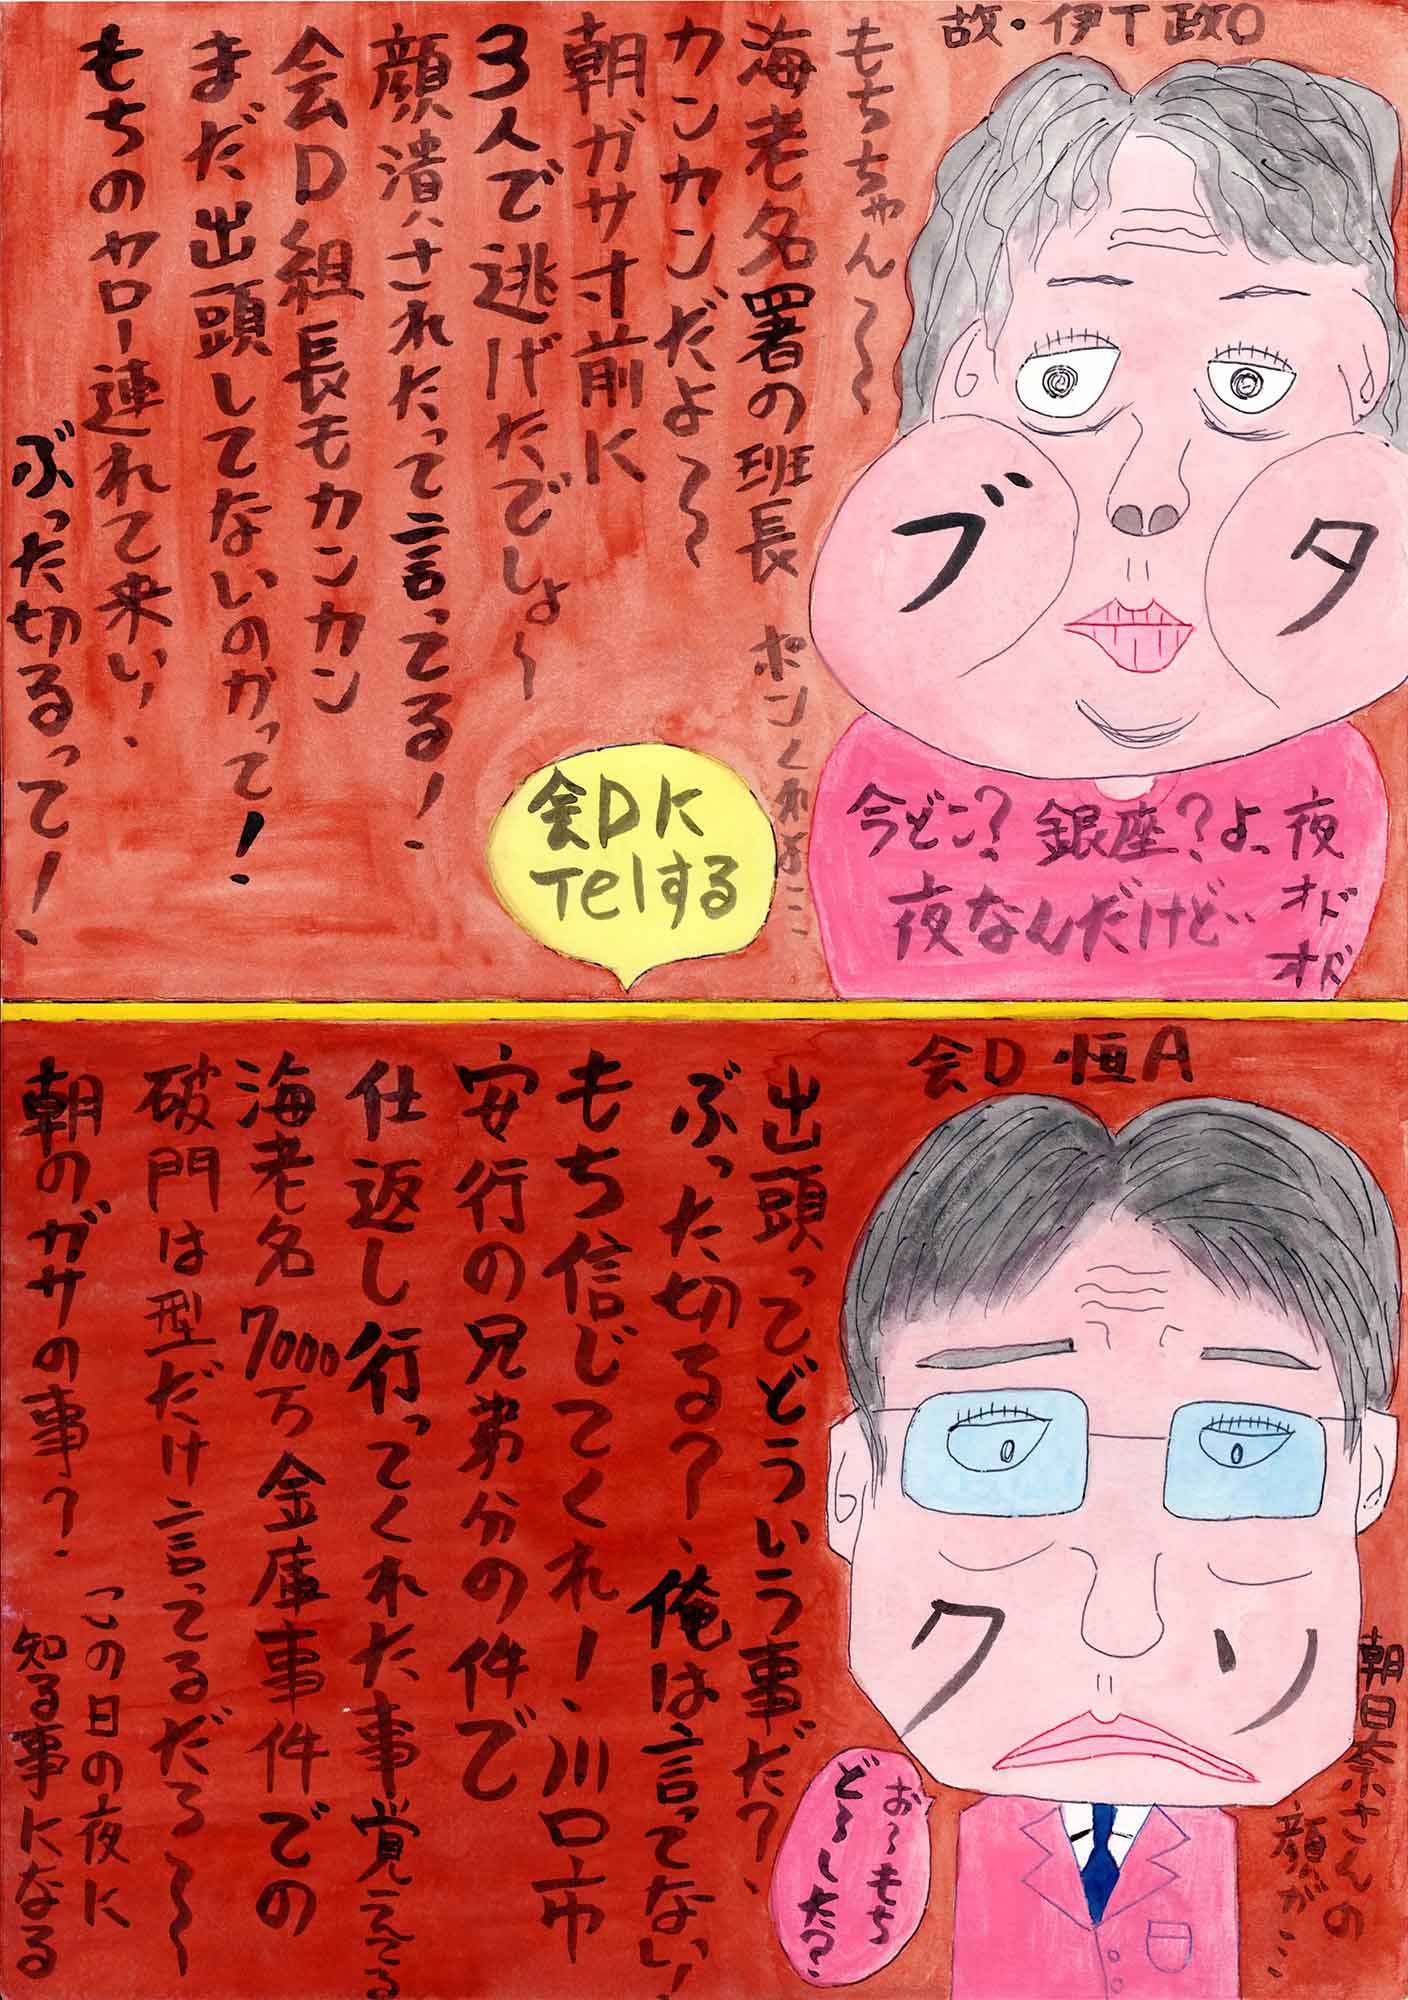 故・伊T政O
もちちゃん～～～
海老名署の班長
ポンくれよ…
カンカンだよ～～～
朝ガサ寸前に
3人で逃げたでしょ～
顔潰されたって言ってる!
会D組長もカンカン
まだ出頭してないのかって!
もちのヤロー連れて来い、
ぶった切るって!、
ブタ
今どこ?銀座?よ、夜
夜なんだけど…
オドオド
会Dに
Telする
会D・恒A
出頭ってどういう事だ?、
ぶった切る?、俺は言ってない!
もち信じてくれ!、川口市
安行の兄弟分の件で
仕返し行ってくれた事覚えてる
海老名7000万金庫事件での
破門は型だけ言ってるだろ～～
朝のガサの事?、
この日の夜に
知る事になる
クソ
朝日奈さんの
顔が…
お～もち
ど～した?、